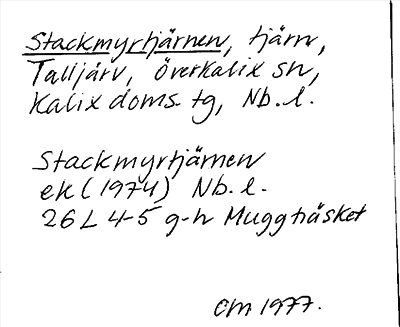 Stackmyrtjärnen, tjärn,
Talljärv, Överkalix sn,
Kalix doms. tg, Nb. l.
Stackmyrtjärnen
ek (1974) Nb. l.
26 L 4-5 g-h Muggträsket
CM 1977.